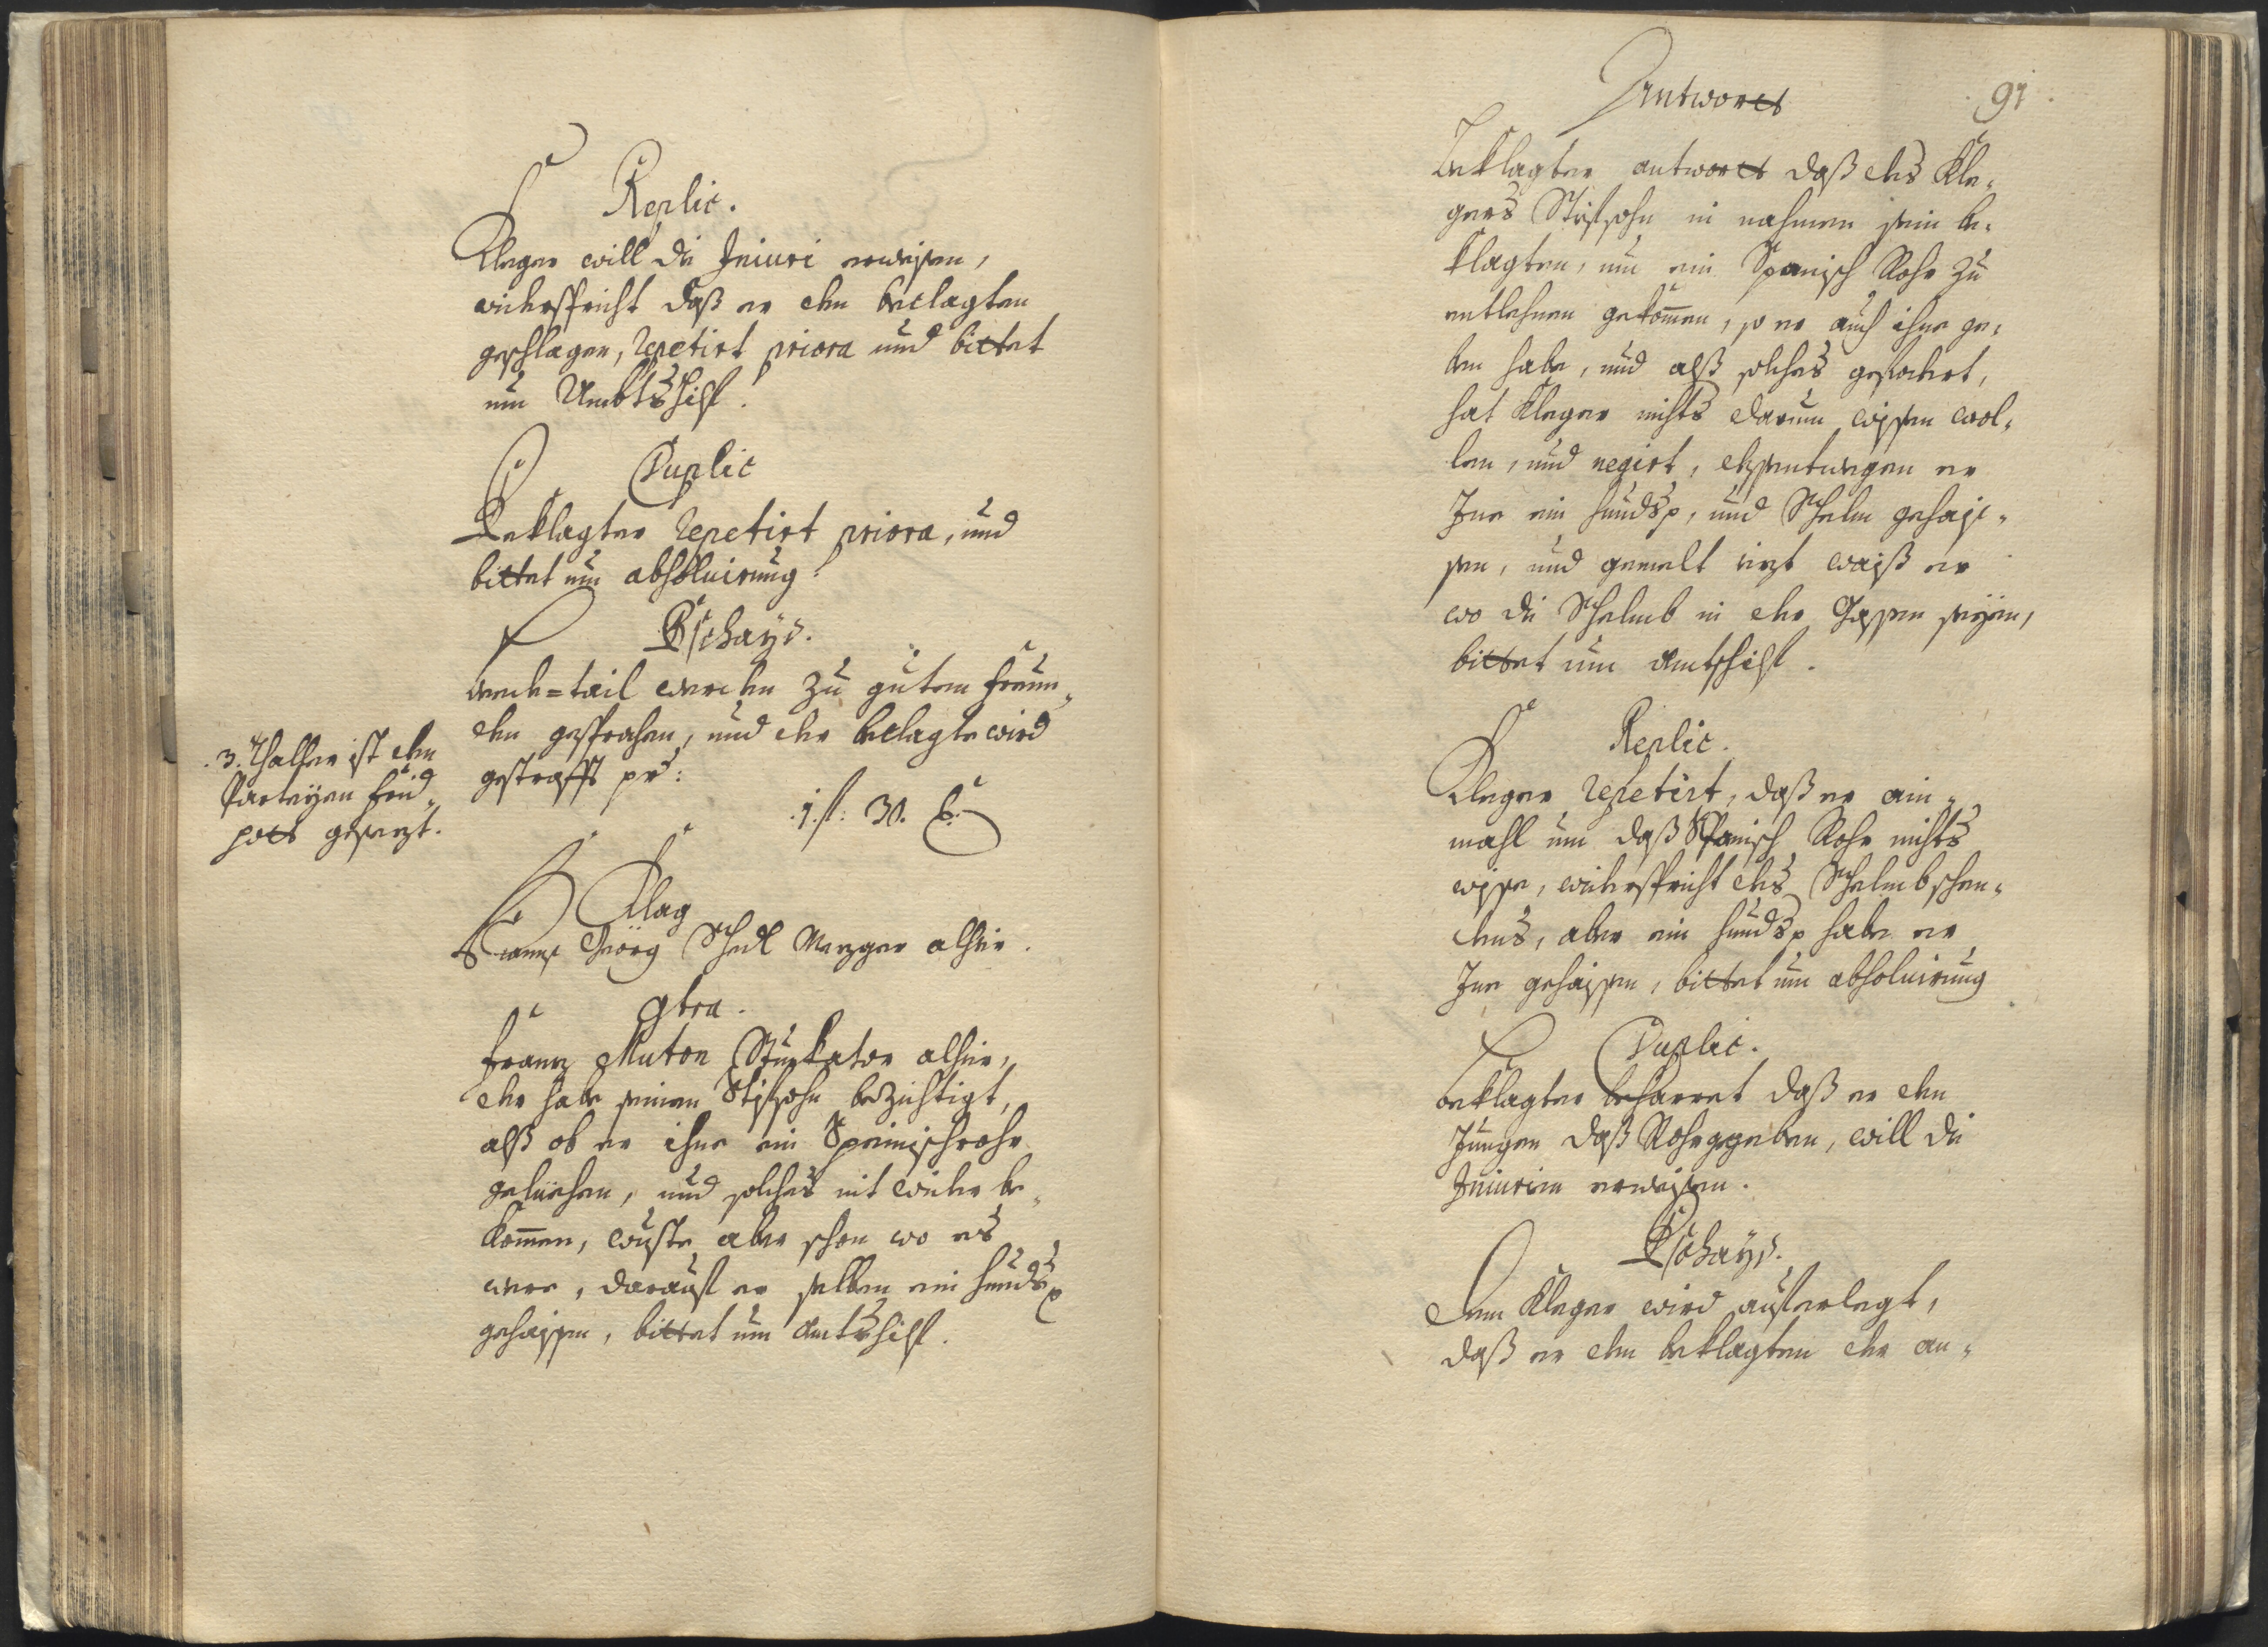 Replic.
Kleger will die Iniuri erweisen,
widerspricht daß er den beclagten
geschlagen, repetirt priora und bittet
um Ambtshilf.
Duplic
Beklagter repetirt priora, und
bittet um absoluirung.
Bschayd.
beede=tail werden zu gutem freun=
den gesprochen, und der beclagte wird
gestrafft pr:
.1. fl: 30. k.
.3. Thaller ist den
Parteyen frid=
pott gesezt.
Klag
Geörg Metzger alhier.
Contra.
Franz Muton Stuckator alhier,
der habe seinen Stifsohn bezichtigt,
alß ob er ihne ein Spänischrohr
geliehen, und solches nit wider be=
kommen, wuste aber schon wo es
were, darauf er selben ein hundsf
gehaissen, bittet um Amtshilf.
Antwortt
91
Beklagter antwortt daß des Kle=
gers Stifsohn in nahmen sein be=
klagten, um ein Spanisch Rohr zu
entlehnen gekommen, so er auch ihne ge=
ben habe, und alß solches gefodert,
hat Kleger nichts darum wissen wol=
len, und negirt, dessentwegen er
Ine ein hundsf, und Schelm gehais=
sen, und gemelt iezt waiß er
wo die Schelmb in der Gassen seyen,
bittet um Amtshilf.
Replic.
Kleger repetirt, daß er ain=
mahl um daß Spanisch Rohr nichts
wisse, widerspricht des Schelmbschen=
dens, aber ein hundsf habe er
Ine gehaissen, bittet um absoluirung
Duplic.
beklagter beharret daß er den
Jungen daß Rohr gegeben, will die
Iniurien erweissen.
Bschayd.
Dem Kleger wird auferlegt,
daß er den beklagten der an=